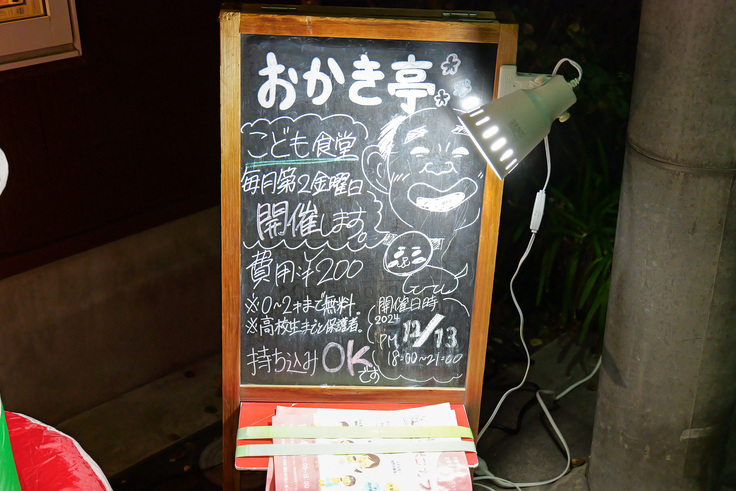 おかき亭
こども食堂
毎月第2金曜日
開催します。
費用¥200
※0~2才まで無料。
※高校生までと保護者。
持ち込みOKです
開催日時
2024
12/13
PM 18:00~21:00